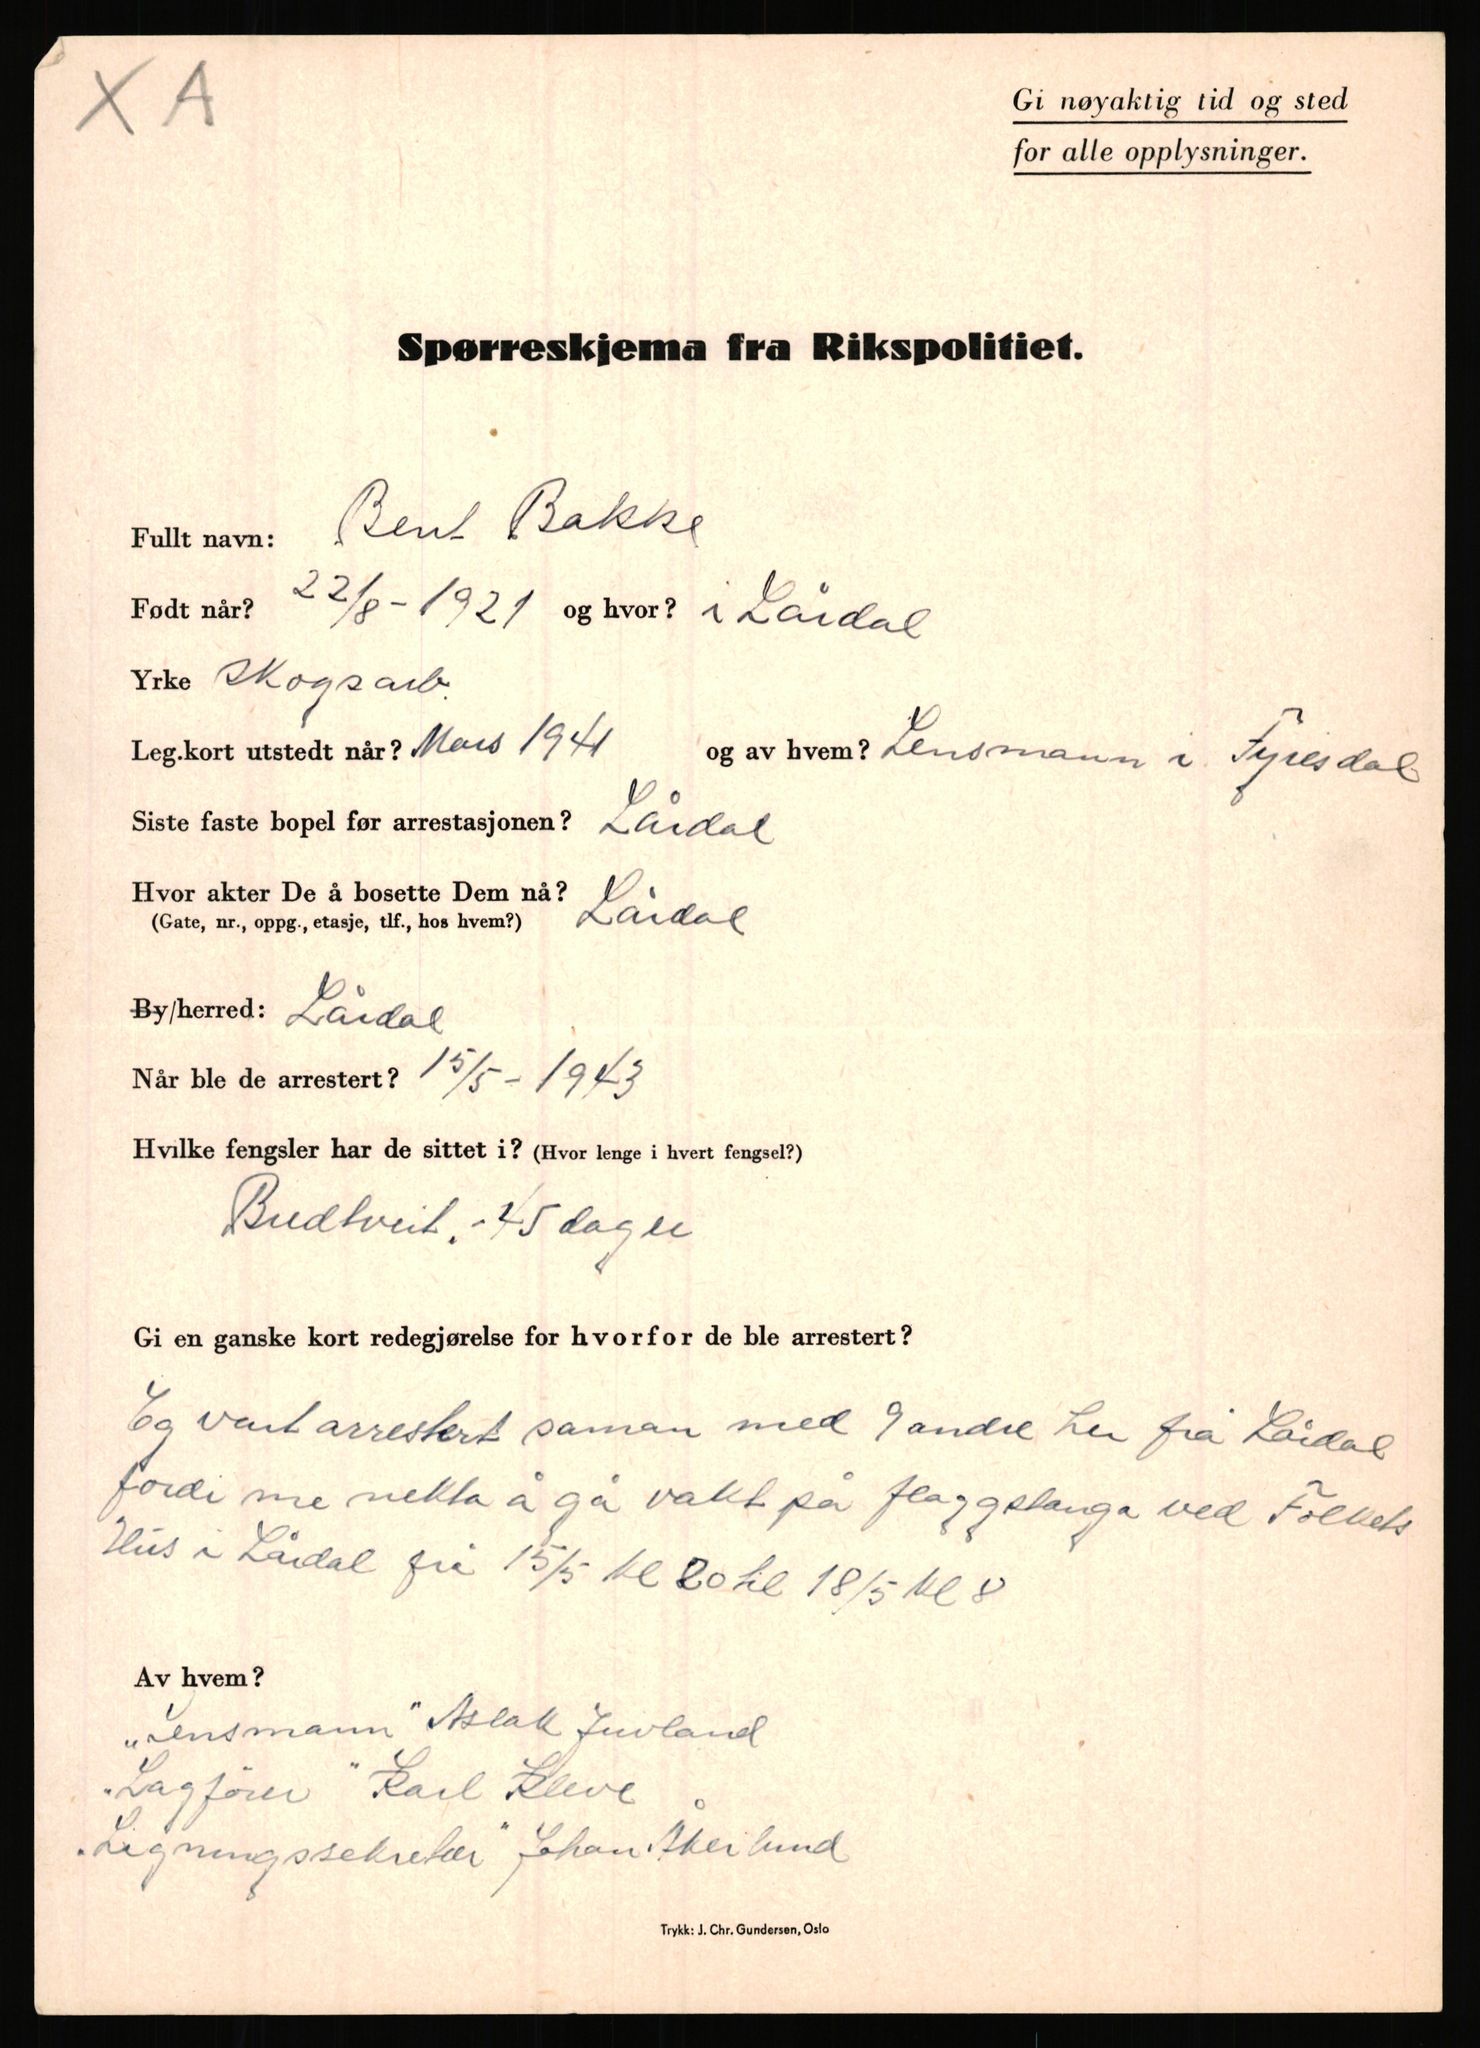 X A
Gi nøyaktig tid og sted
for alle opplysninger.
Spørreskjema fra Rikspolitiet.
Fullt navn: Bent Bakke
Født når? 22/8 - 1921 og hvor? i Lårdal
Yrke skogsarb.
Leg.kort utstedt når? Mars 1941 og av hvem? Lensmann i Fyresdal
Siste faste bopel før arrestasjonen? Lårdal
Hvor akter De å bosette Dem nå? Lårdal
(Gate, nr., oppg., etasje, tlf., hos hvem?)
By/herred: Lårdal
Når ble de arrestert? 15/5 - 1943
Hvilke fengsler har de sittet i? (Hvor lenge i hvert fengsel?)
Bredtveit. - 45 dager
Gi en ganske kort redegjørelse for hvorfor de ble arrestert?
Eg vart arrestert saman med 9 andre her frå Lårdal
fordi me nekta å gå vakt på flaggstanga ved Folkets
Hus i Lårdal frå 15/5 kl 20 til 18/5 kl 8
Av hvem?
„Lensmann" Aslak Juvland
„Lagfører" Karl Kleve
„Ligningssekretær" Johan Åkerlund
Trykk: J. Chr. Gundersen, Oslo